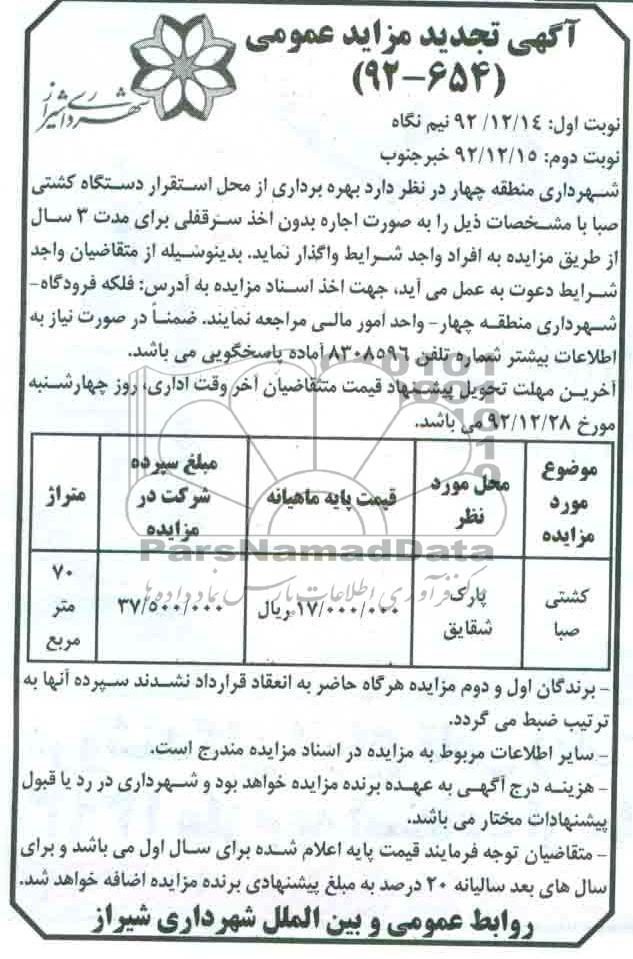 آگهی تجدید مزاید عمومی
(۹۲-۶۵۴)
شهرداری شیراز
نوبت اول: ۹۲/۱۲/۱٤ نیم نگاه
نوبت دوم: ۹۲/۱۲/۱٥ خبرجنوب
شهرداری منطقه چهار در نظر دارد بهره برداری از محل استقرار دستگاه کشتی
صبا با مشخصات ذیل را به صورت اجاره بدون اخذ سرقفلی برای مدت ۳ سال
از طریق مزایده به افراد واجد شرایط واگذار نماید. بدینوسیله از متقاضیان واجد
شرایط دعوت به عمل می آید، جهت اخذ اسناد مزایده به آدرس: فلکه فرودگاه-
شهرداری منطقه چهار- واحد امور مالی مراجعه نمایند. ضمناً در صورت نیاز به
اطلاعات بیشتر شماره تلفن ۸۳۰۸٥۹٦ آماده پاسخگویی می باشد.
آخرین مهلت تحویل پیشنهاد قیمت متتقاضیان آخر وقت اداری، روز چهارشنبه
مورخ ۹۲/۱۲/۲۸ می باشد.
موضوع مورد مزایده
محل مورد نظر
قیمت پایه ماهیانه
مبلغ سپرده شرکت در مزایده
متراژ
کشتی صبا
پارک شقایق
۱۷/۰۰۰/۰۰۰ ریال
۳۷/۵۰۰/۰۰۰
۷۰ متر مربع
ParsNamadData
مرکز فرآوری اطلاعات پارس نماد داده ها
- برندگان اول و دوم مزایده هرگاه حاضر به انعقاد قرارداد نشدند سپرده آنها به
ترتیب ضبط می گردد.
- سایر اطلاعات مربوط به مزایده در اسناد مزایده مندرج است.
- هزینه درج آگهی به عهده برنده مزایده خواهد بود و شهرداری در رد یا قبول
پیشنهادات مختار می باشد.
- متقاضیان توجه فرمایند قیمت پایه اعلام شده برای سال اول می باشد و برای
سال های بعد سالیانه ۲۰ درصد به مبلغ پیشنهادی برنده مزایده اضافه خواهد شد.
روابط عمومی و بین الملل شهرداری شیراز